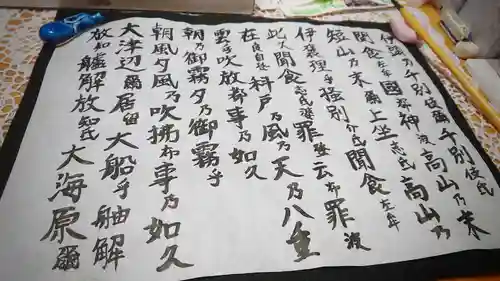 伊頭乃千別伎千別伎氐
聞食左牟國都神波高山乃末
短山乃末爾上坐志氐高山乃
伊褒理乎掻別介氐聞食左牟
此久聞食志氐婆罪登云布罪波
在良自登科戸乃風乃天乃八重
雲乎吹放都事乃如久
朝乃御霧夕乃御霧乎
朝風夕風乃吹拂布事乃如久
大津辺爾居留大船乎舳解
放知艫解放知氐大海原爾